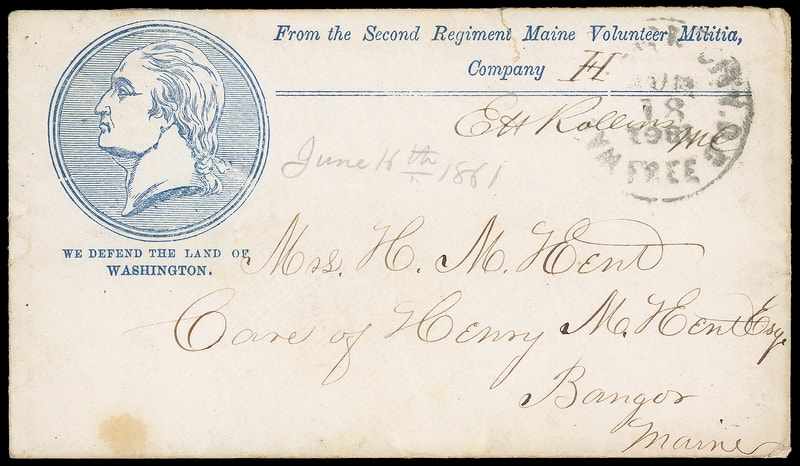 From the Second Regiment Maine Volunteer Militia,
Company H
E H Rollins MC
JUN
18
1861
FREE
June 16th 1861
WE DEFEND THE LAND OF
WASHINGTON.
Mrs. H. M. Hent
Care of Henry M. Hent Esq
Bangor
Maine